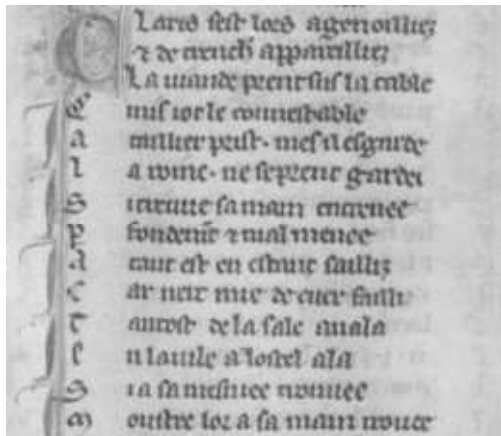 Claris sest lors agenoilliez
⁊ de trench appareilliez
La viande prent sus la table
E le connestable
A taillier prist · mes il esgarde
L a roine · ne se prent garde
S i treuue sa main entamee
P fondemt ⁊ mal menee
A tant est en estant sailliz
C ar mie de cuer failli
T antost de la sale auala
E n la uile a lostel ala
S i a sa mesniee trouuee
M oustre lor a sa main trouee